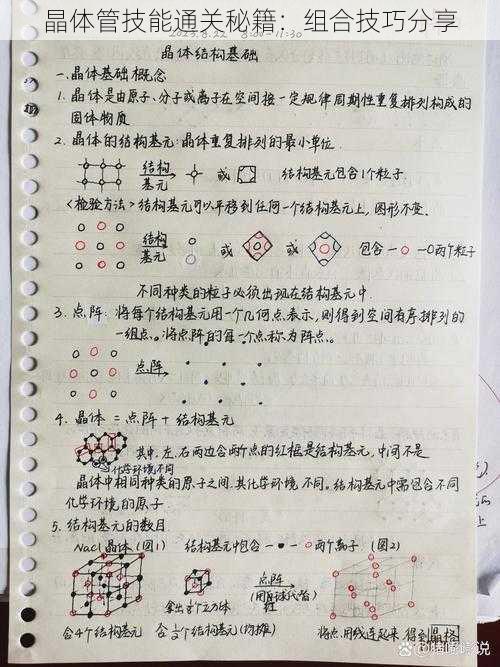 晶体管技能通关秘籍：组合技巧分享
2023.8.22 8:00-11:30
晶体结构基础
一.晶体基础概念
1. 晶体是由原子、分子或离子在空间按一定规律周期性重复排列构成的
固体物质
2. 晶体的结构基元:晶体重复排列的最小单位.
结构
基元
或
结构基元包含1个粒子.
<检验方法>结构基元可以平移到任何一个结构基元上,图形不变.
结构
基元
或
或
包含一 一0两个粒子
不同种类的粒子必须出现在结构基元中.
3. 点阵: 将每个结构基元用一个几何点表示,则得到空间有序排列的
一组点。将点阵的每一个点称为阵点。
点阵
4. 晶体 = 点阵 + 结构基元
其中,左、右两边含两个点的红框是结构基元,中间不是
化学环境不同
晶体中相同种类的原子之间.其化学环境不同。结构基元中需包含不同
化学环境的原子
5. 结构基元的数目.
NaCl晶体(图1) 结构基元中包含一●一○两个离子.(图2)
拿出8个立方体
点阵
红
含4个结构基元
含½个结构基元(均摊)
将点用线连起来,得到晶格